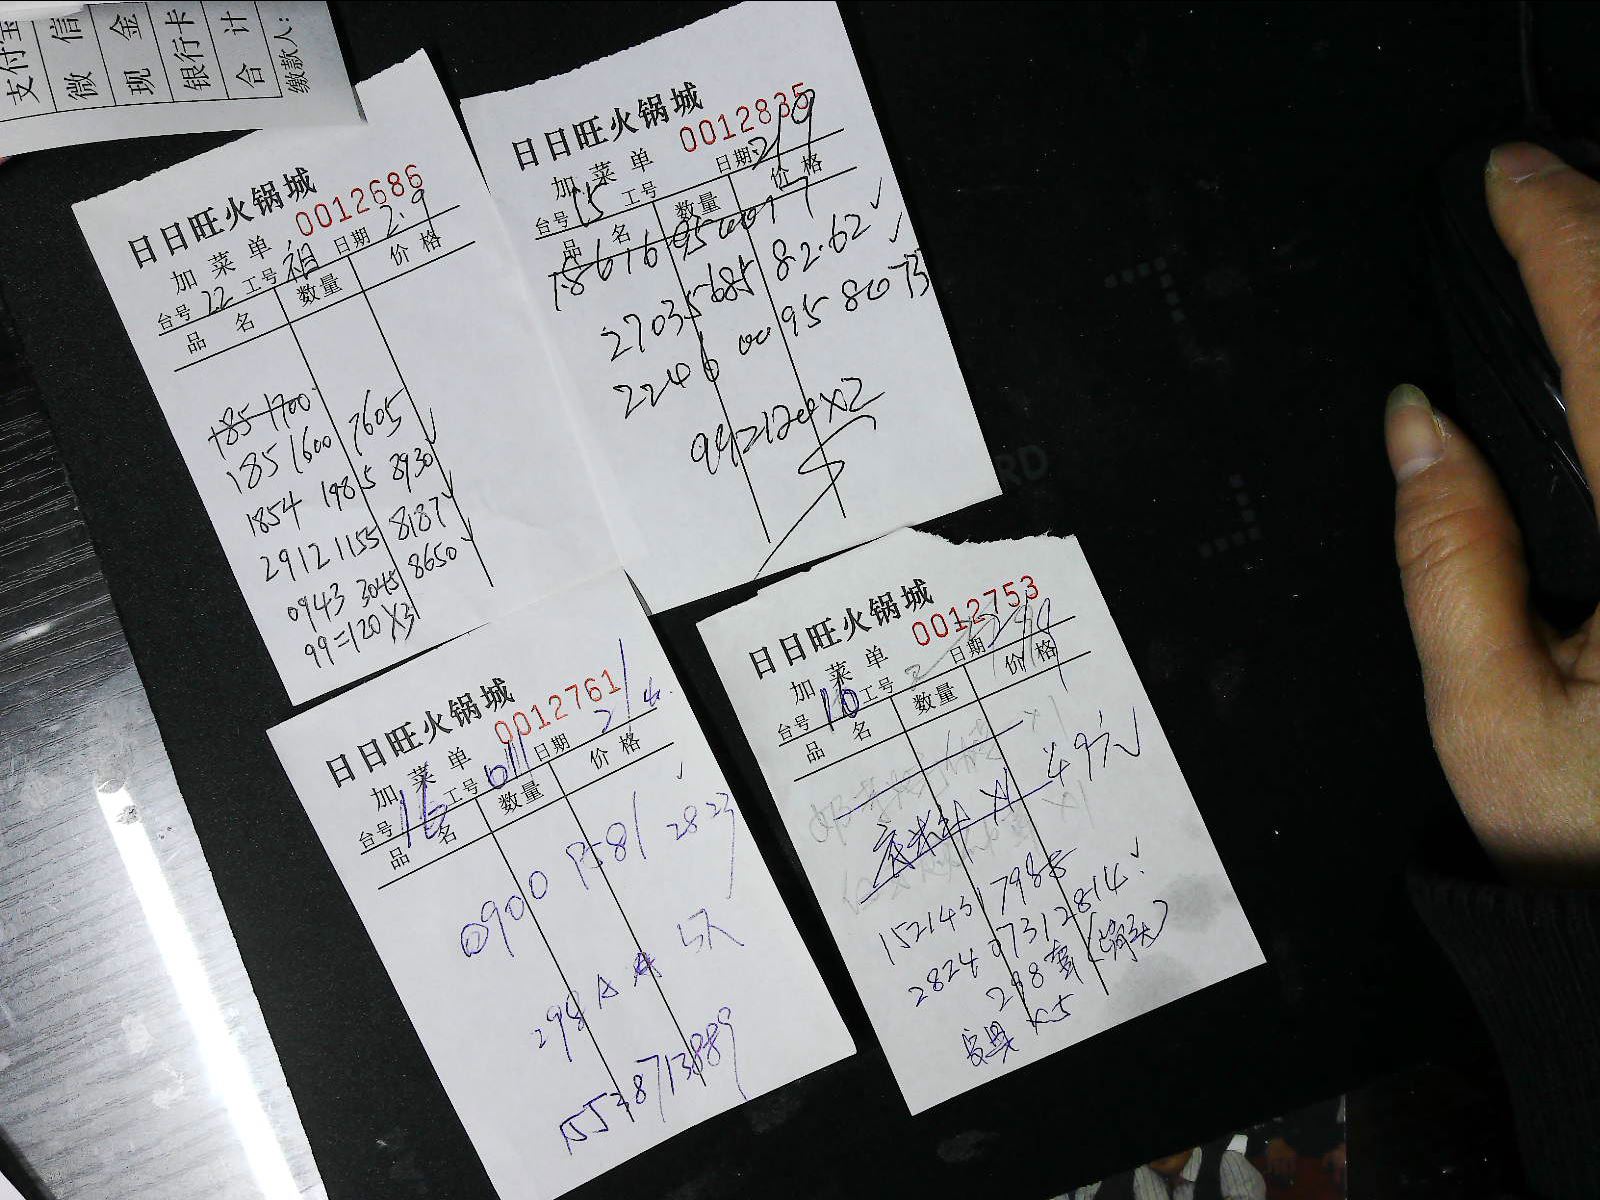 支付宝
微 信
现 金
银行卡
合 计
缴款人:
日日旺火锅城
加菜单 0012686
台号 22 工号 祖 日期 2.9
品 名 数量 价格
185 1700
185 1600 7605
1854 1985 8930
2912 1155 8187
0943 3045 8650
99=120X3
日日旺火锅城
加菜单 0012835
台号 15 工号 日期 2/9
品 名 数量 价格
18616 9500 97
27035685 82.62
2246 00 95 8073
99 2120 X2
日日旺火锅城
加菜单 0012761
台号 16 工号 011 日期 2/
品 名 数量 价格
0900 8581 2823
298
15538713889
日日旺火锅城
加菜单 0012753
台号 16 工号 日期
品 名 数量 价格
X1 49元
15214517985
2824 07312814
298套
餐具 X5